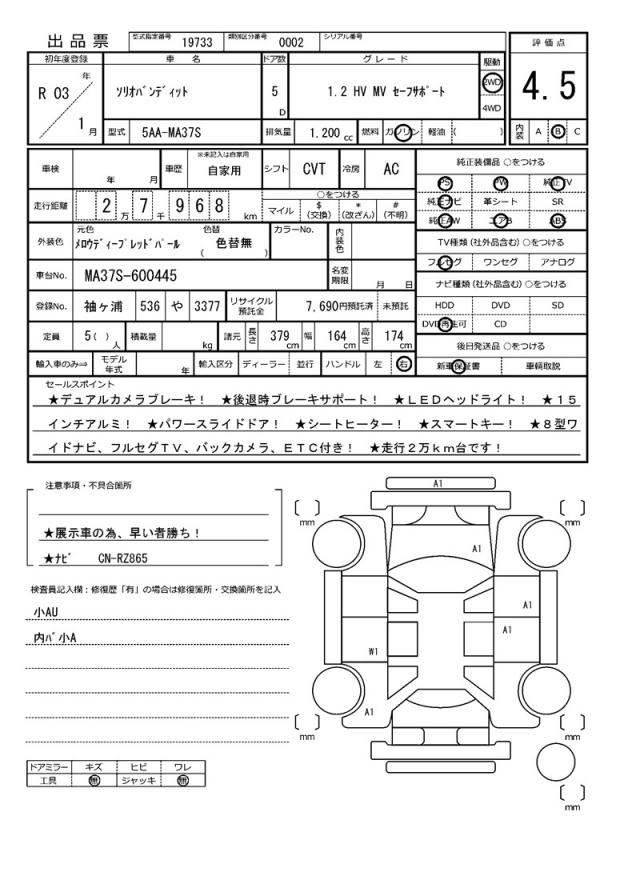 出品票 型式指定番号 19733 類別区分番号 0002 シリアル番号
評価点
初年度登録 車名 ドア数 グレード 駆動
R 03 年 1 月
ソリオバンディット 5 D 1.2 HV MV セーフサポート 2WD 4WD
4.5
型式 5AA-MA37S 排気量 1.200 cc 燃料 ガソリン 軽油 ( ) 内装 A B C
車検 年 月 車歴 ※未記入は自家用 自家用 シフト CVT 冷房 AC
純正装備品 ○をつける
PS PW 純正TV
純正ナビ 革シート SR
純正AW エアB ABS
走行距離 2 万 7 千 9 6 8 km
○をつける
マイル $ (交換) * (改ざん) # (不明)
外装色 元色 メロウディープレッドパール 色替 ( 色替無 ) カラーNo. 内装色
TV種類 (社外品含む) ○をつける
フルセグ ワンセグ アナログ
車台No. MA37S-600445 名変期限 月 日
ナビ種類 (社外品含む) ○をつける
HDD DVD SD
DVD再生可 CD
登録No. 袖ヶ浦 536 や 3377 リサイクル預託金 7,690円預託済 未預託
定員 5( ) 人 積載量 kg 諸元 長さ 379 cm 幅 164 cm 高さ 174 cm
後日発送品 ○をつける
新車保証書 車輌取説
輸入車のみ⇒ モデル年式 年 輸入区分 ディーラー 並行 ハンドル 左 右
セールスポイント
★デュアルカメラブレーキ! ★後退時ブレーキサポート! ★LEDヘッドライト! ★15
インチアルミ! ★パワースライドドア! ★シートヒーター! ★スマートキー! ★8型ワ
イドナビ、フルセグTV、バックカメラ、ETC付き! ★走行2万km台です!
注意事項・不具合箇所
★展示車の為、早い者勝ち!
★ナビ CN-RZ865
検査員記入欄：修復歴「有」の場合は修復箇所・交換箇所を記入
小AU
内バ小A
ドアミラー キズ ヒビ ワレ
工具 無 ジャッキ 無
A1
mm
mm
A1
A1
A1
W1
A1
mm
mm
mm